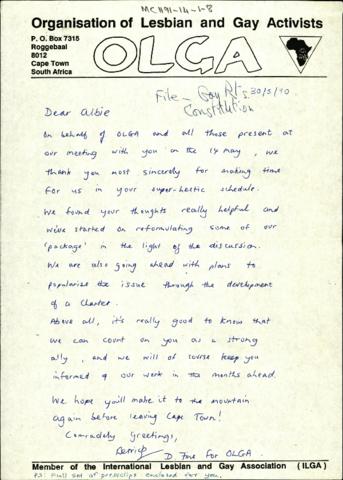 MCH91-14-1-8
Organisation of Lesbian and Gay Activists
P. O. Box 7315
Roggebaai
8012
Cape Town
South Africa
OLGA
File - Gay Rts.
Constitution
30/5/90
Dear Albie
On behalf of OLGA and all those present at
our meeting with you on the 14 may, we
thank you most sincerely for making time
for us in your super-hectic schedule.
We found your thoughts really helpful and
we've started on reformulating some of our
'package' in the light of the discussion.
We are also going ahead with plans to
popularise the issue through the development
of a Charter.
Above all, it's really good to know that
we can count on you as a strong
ally, and we will of course keep you
informed of our work in the months ahead.
We hope you'll make it to the mountain
again before leaving Cape Town!
Comradely Greetings,
Derrick D. Fine for OLGA.
Member of the International Lesbian and Gay Association (ILGA)
P.S. Full set of pressclips enclosed for you.